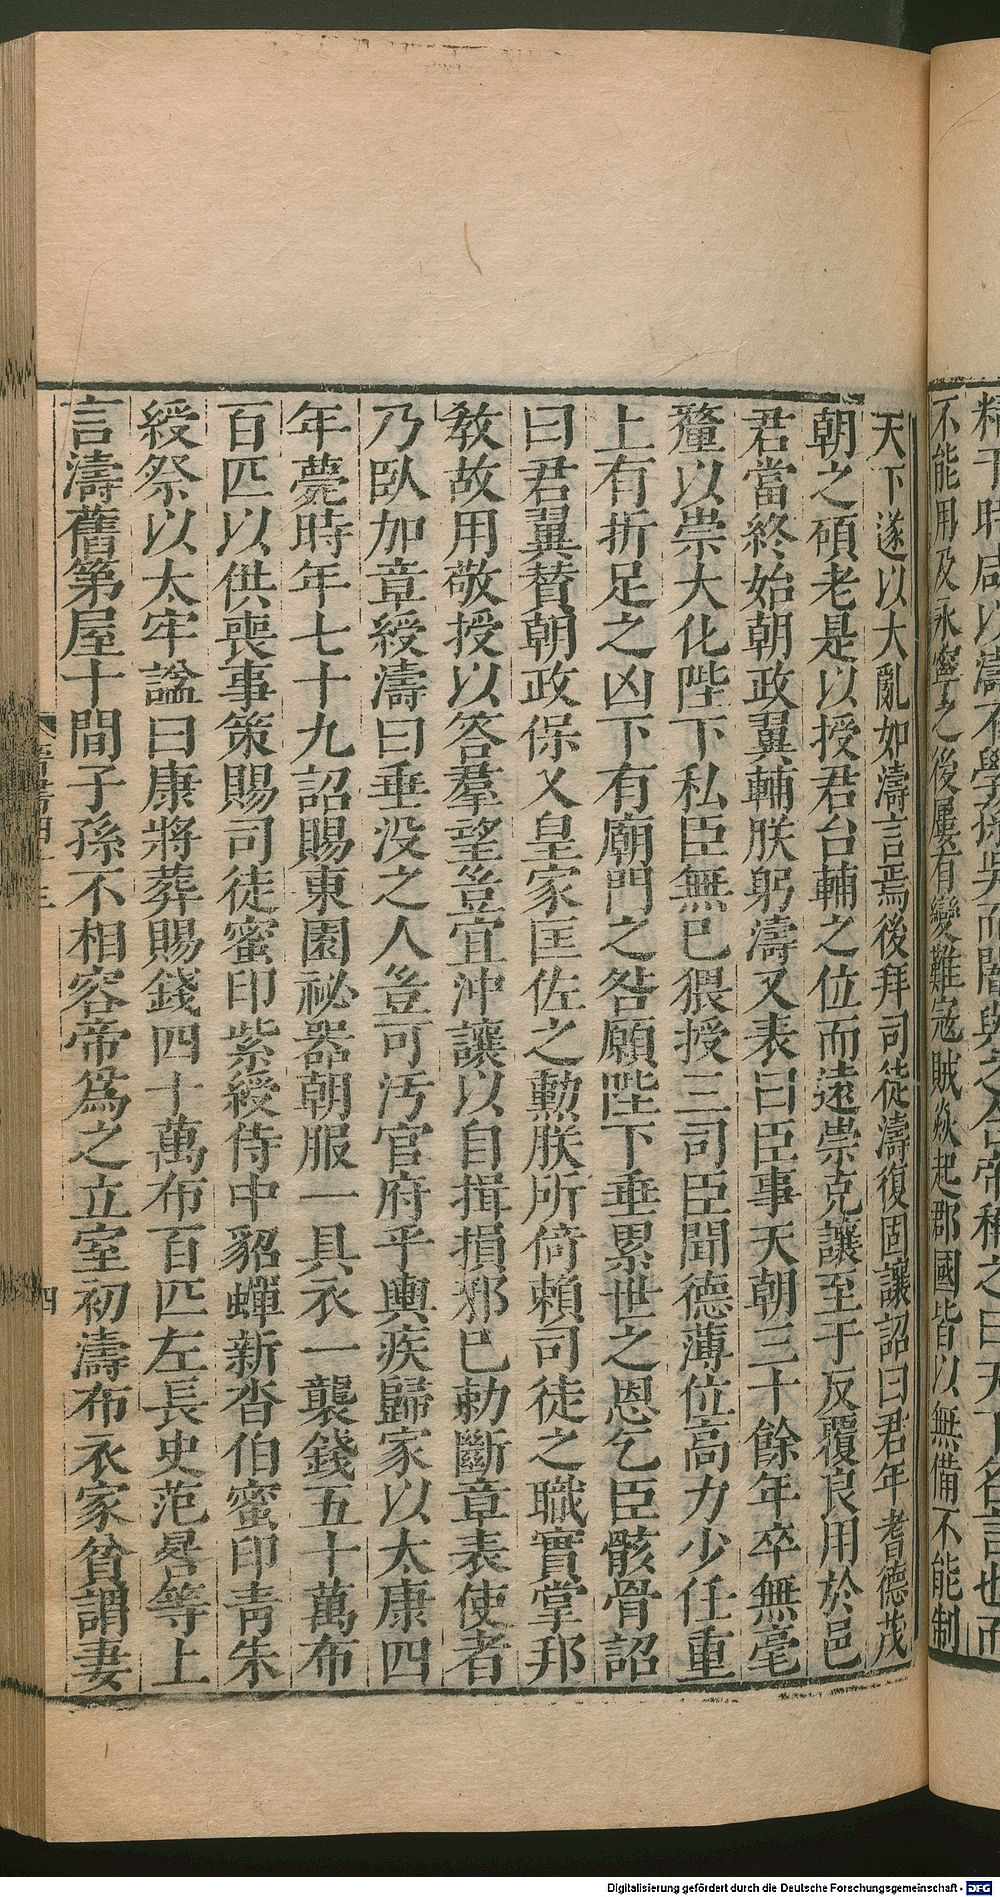 不能用及永寧之後屢有變難寇賊焱起郡國皆以無備不能制
天下遂以大亂如濤言焉後拜司徒濤復固讓詔曰君年耆德茂
朝之碩老是以授君台輔之位而遠崇克讓至于反覆良用於邑
君當終始朝政翼輔朕躬濤又表曰臣事天朝三十餘年卒無毫
釐以崇大化陛下私臣無已猥授三司臣聞德薄位高力少任重
上有折足之凶下有廟門之咎願陛下垂累世之恩乞臣骸骨詔
曰君翼贊朝政保乂皇家匡佐之勳朕所倚賴司徒之職實掌邦
教故用敬授以答羣望豈宜沖讓以自揖損邪已勅斷章表使者
乃臥加章綬濤曰垂没之人豈可汚官府乎輿疾歸家以太康四
年薨時年七十九詔賜東園祕器朝服一具衣一襲錢五十萬布
百匹以供喪事策賜司徒蜜印紫綬侍中貂蟬新沓伯蜜印青朱
綬祭以太牢諡曰康將葬賜錢四十萬布百匹左長史范晷等上
言濤舊第屋十間子孫不相容帝爲之立室初濤布衣家貧謂妻
四
Digitalisierung gefördert durch die Deutsche Forschungsgemeinschaft - DFG